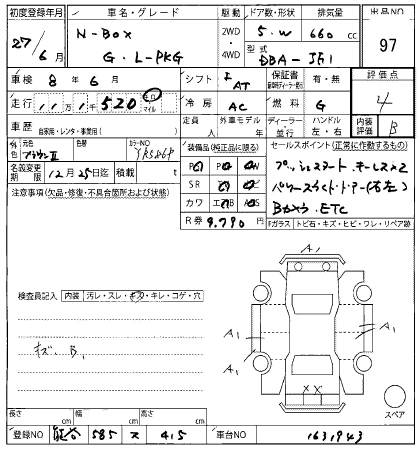 初度登録年月 車名・グレード 駆動 ドア数・形状 排気量 出品NO
27/6月 N-Box G・L-PKG 2WD・4WD 5.W 660 cc 97
型式 DBA-JF1
車検 8年6月 シフト I AT 保証書 有・無 評価点 4
走行 11万1千520 キロ マイル 冷房 AC 燃料 G 内装評価 B
車歴 自家用・レンタ・事業用( ) 定員 人 外車モデル年式 ディーラー・並行 ハンドル 左・右
外装色 元色 ブラウンⅡ 色替 カラーNO YR586P
名義変更 12月25日迄 積載 t
装備品(純正品に限る)
PS PW
SR
カワ
R券 9,790円
セールスポイント(正常に作動するもの)
プッシュスタート.キーレス×2
パワースライドドアー(右左)
Bカメラ.ETC
Fガラス・トビ石・キズ・ヒビ・ワレ・リペア跡
注意事項(欠品・修復・不具合箇所および状態)
検査員記入 内装 汚レ・スレ・キズ・キレ・コゲ・穴
キズ. B1
A1
A1
A1
A1
XX
スペア
長さ cm 幅 cm 高さ cm
登録NO 585 ス 415 車台NO 1631943